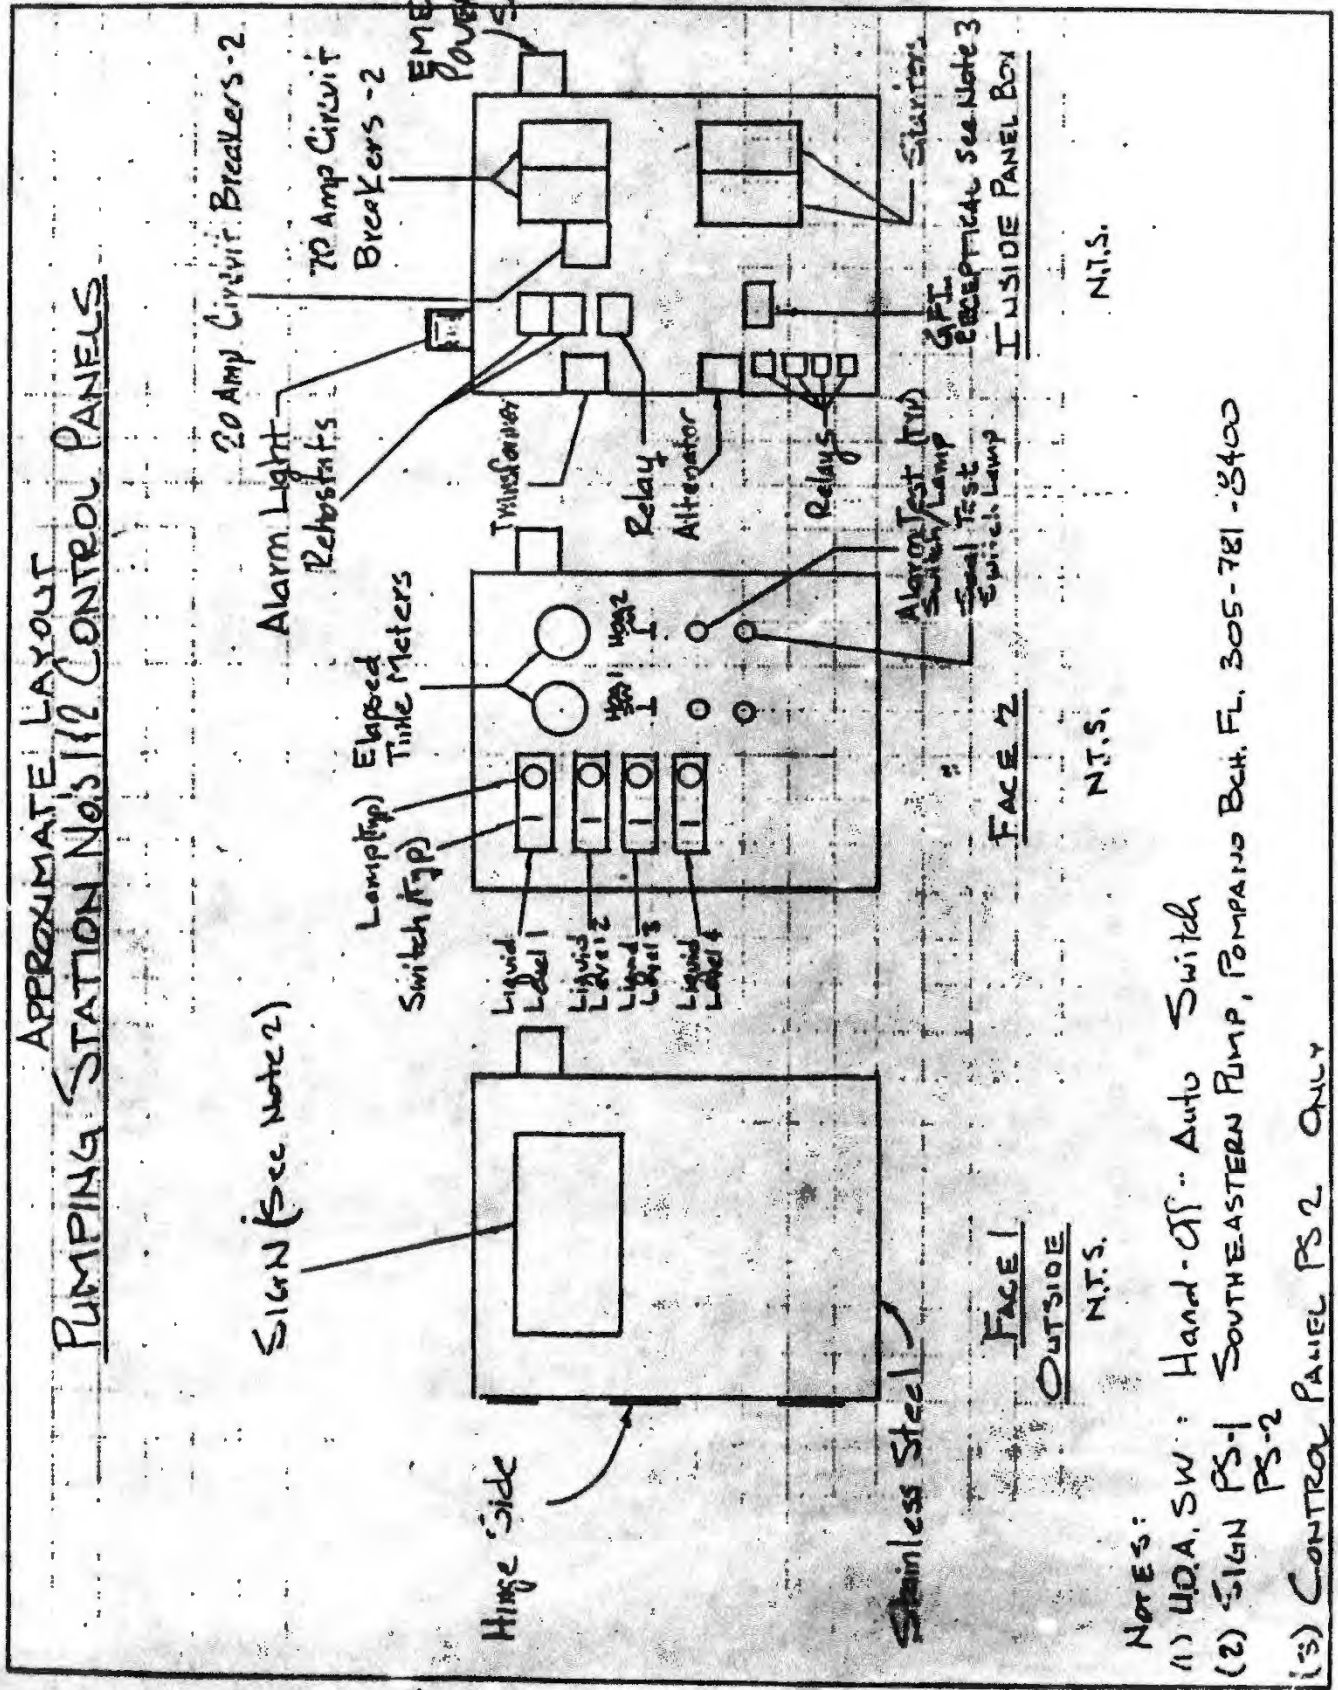 APPROXIMATE LAYOUT
PUMPING STATION No's 1 & 2 CONTROL PANELS
SIGN (See Note 2)
Hinge Side
Stainless Steel
FACE 1
OUTSIDE
N.T.S.
Lamp (Typ)
Switch (Typ)
Elapsed
Time Meters
Liquid
Level 1
Liquid
Level 2
Liquid
Level 3
Liquid
Level 4
HOA 1
SW
HOA 2
SW
Alarm Test (TYP)
Switch/Lamp
Seal Test
Switch Lamp
FACE 2
N.T.S.
20 Amp Circuit Breakers-2
Alarm Light
Rehostats
70 Amp Circuit
Breakers -2
EME
POWE
S
Transformer
Relay
Alternator
Relays
Starters
GFI
RECEPTICAL See Note 3
INSIDE PANEL BOX
N.T.S.
NOTES:
(1) H.O.A. SW: Hand-Off-Auto Switch
(2) SIGN PS-1 SOUTHEASTERN PUMP, POMPANO BCH. FL. 305-781-8400
PS-2
(3) CONTROL PANEL PS 2 ONLY